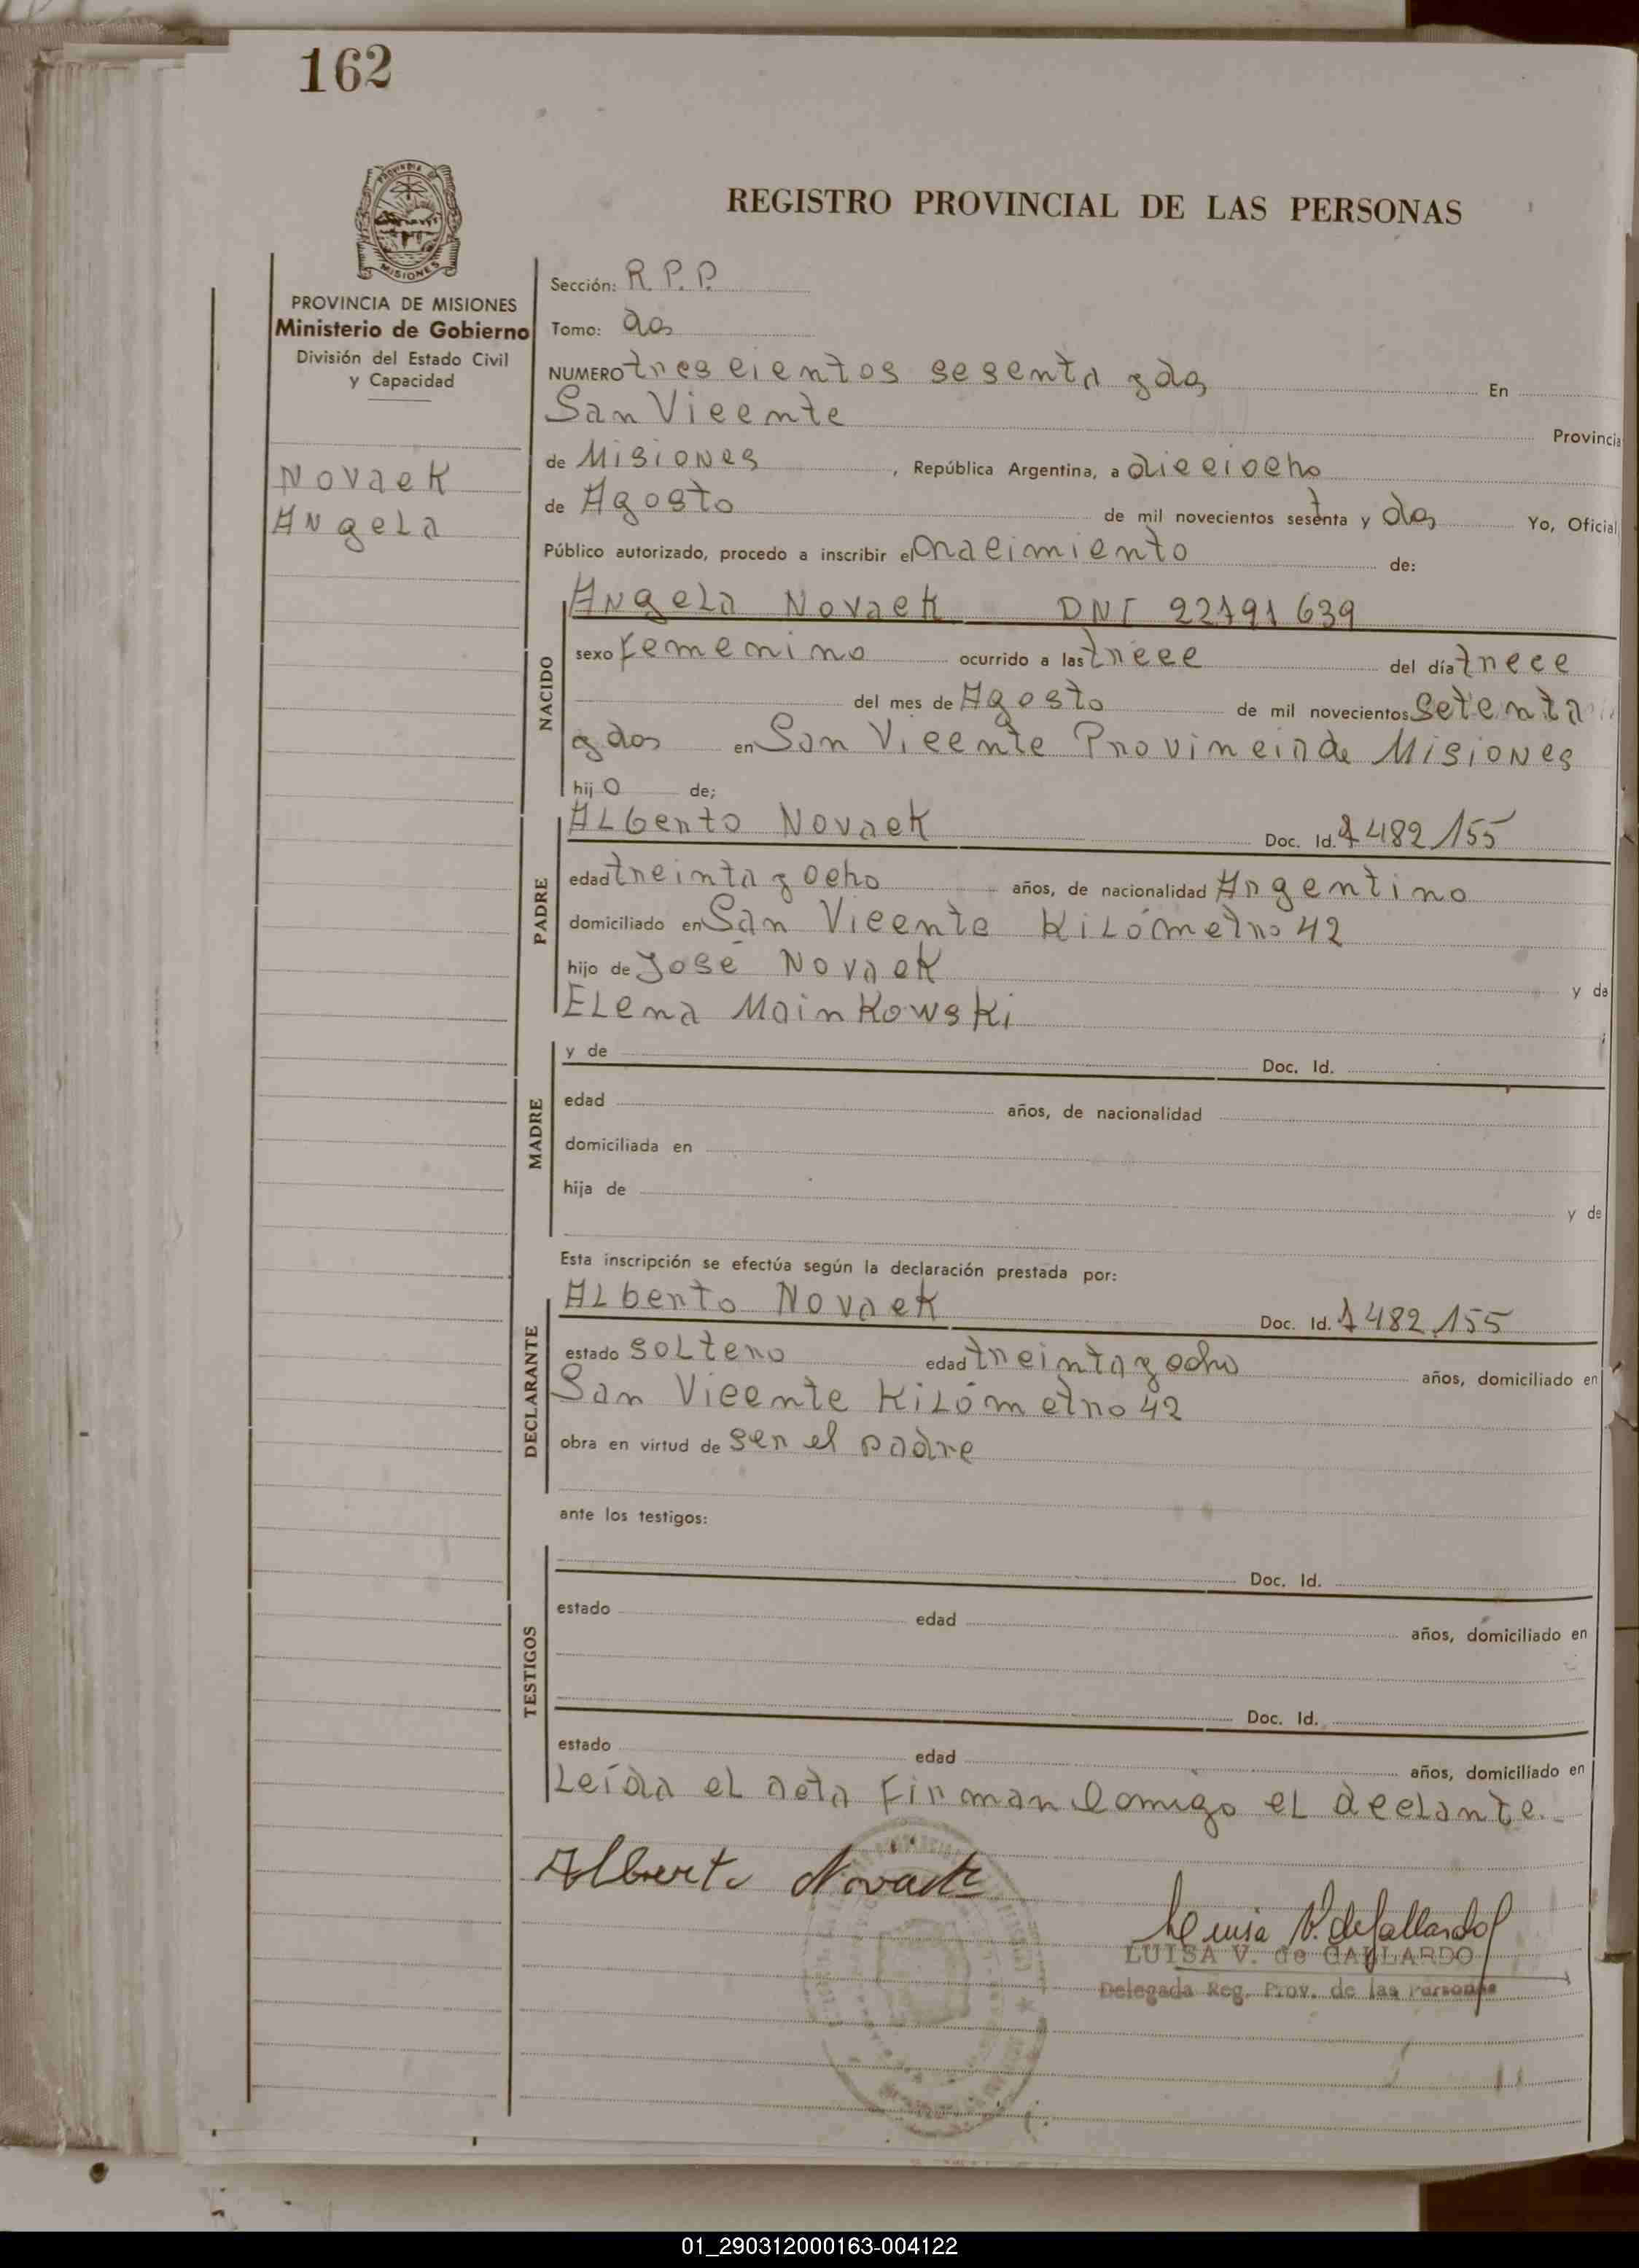 162
REGISTRO PROVINCIAL DE LAS PERSONAS
PROVINCIA DE MISIONES
Ministerio de Gobierno
División del Estado Civil
y Capacidad
Novack
Angela
Sección: R.P.P.
Tomo: dos
NUMERO trescientos sesenta y dos En
San Vicente Provincia
de Misiones, República Argentina, a dieciocho
de Agosto de mil novecientos sesenta y dos Yo, Oficial
Público autorizado, procedo a inscribir el nacimiento de:
Angela Novack DNI 22791639
NACIDO
sexo femenino ocurrido a las trece del día trece
del mes de Agosto de mil novecientos setenta
y dos en San Vicente Provinciade Misiones
hij o de;
PADRE
Alberto Novack Doc. Id. 7482.155
edad treinta y ocho años, de nacionalidad Argentino
domiciliado en San Vicente Kilómetro 42
hijo de José Novack y de
Elena Moinkowski
MADRE
y de Doc. Id.
edad años, de nacionalidad
domiciliada en
hija de y de
Esta inscripción se efectúa según la declaración prestada por:
DECLARANTE
Alberto Novack Doc. Id. 7482.155
estado soltero edad treinta y ocho años, domiciliado en
San Vicente Kilómetro 42
obra en virtud de ser el padre
ante los testigos:
TESTIGOS
Doc. Id.
estado edad años, domiciliado en
Doc. Id.
estado edad años, domiciliado en
Leída el acta firman comigo el declante.
Alberto Novack
Luisa V. de Gallardo
LUISA V. de GALLARDO
Delegada Reg. Prov. de las Personas
01_290312000163-004122